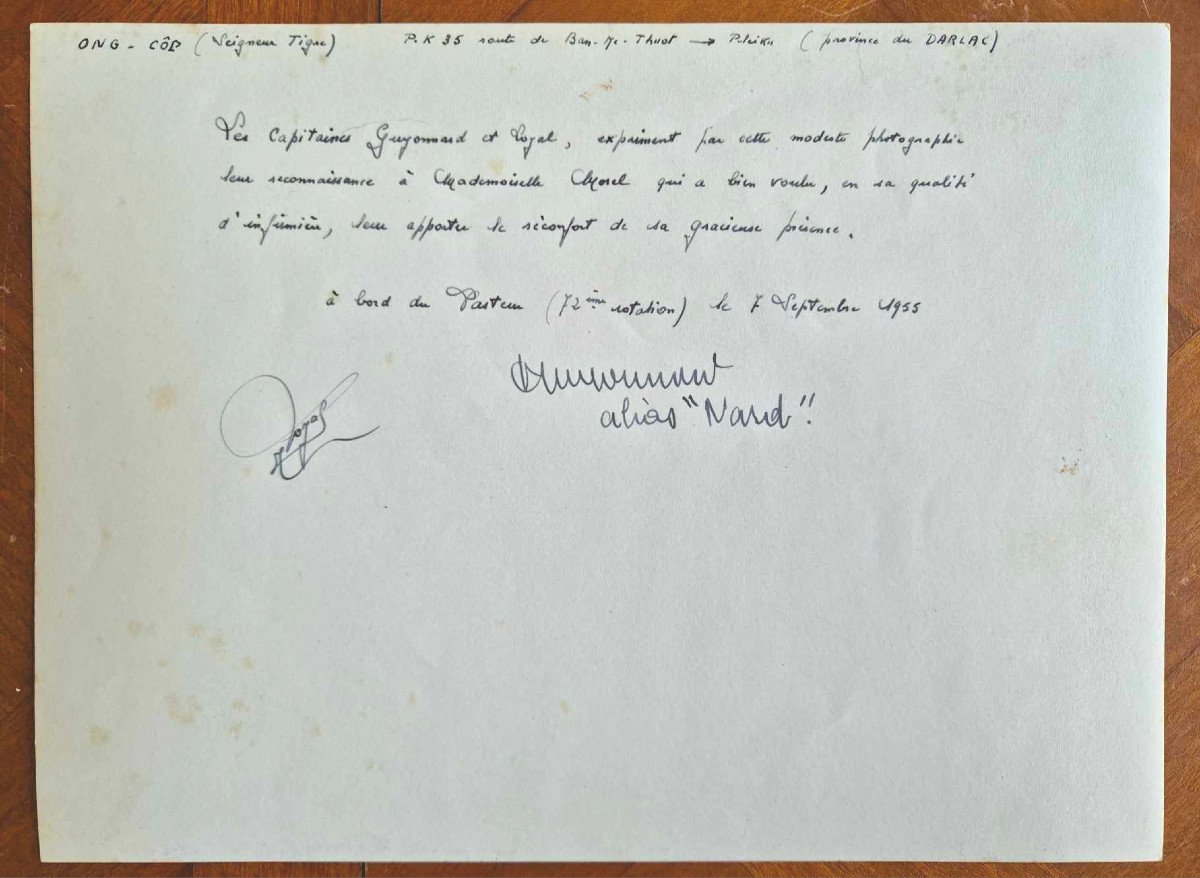 ONG - CÔP (Seigneur Tigre) P.K 35 route de Ban-Me-Thuot → Pleiku (province du DARLAC)
Les Capitaines Guyonnard et Loyal, expriment par cette modeste photographie
leur reconnaissance à Mademoiselle Morel qui a bien voulu, en sa qualité
d'infirmière, leur apporter le réconfort de sa gracieuse présence.
à bord du Pasteur (72ème rotation) le 7 Septembre 1955
Loyal
Guyonnard
alias "Nard"!